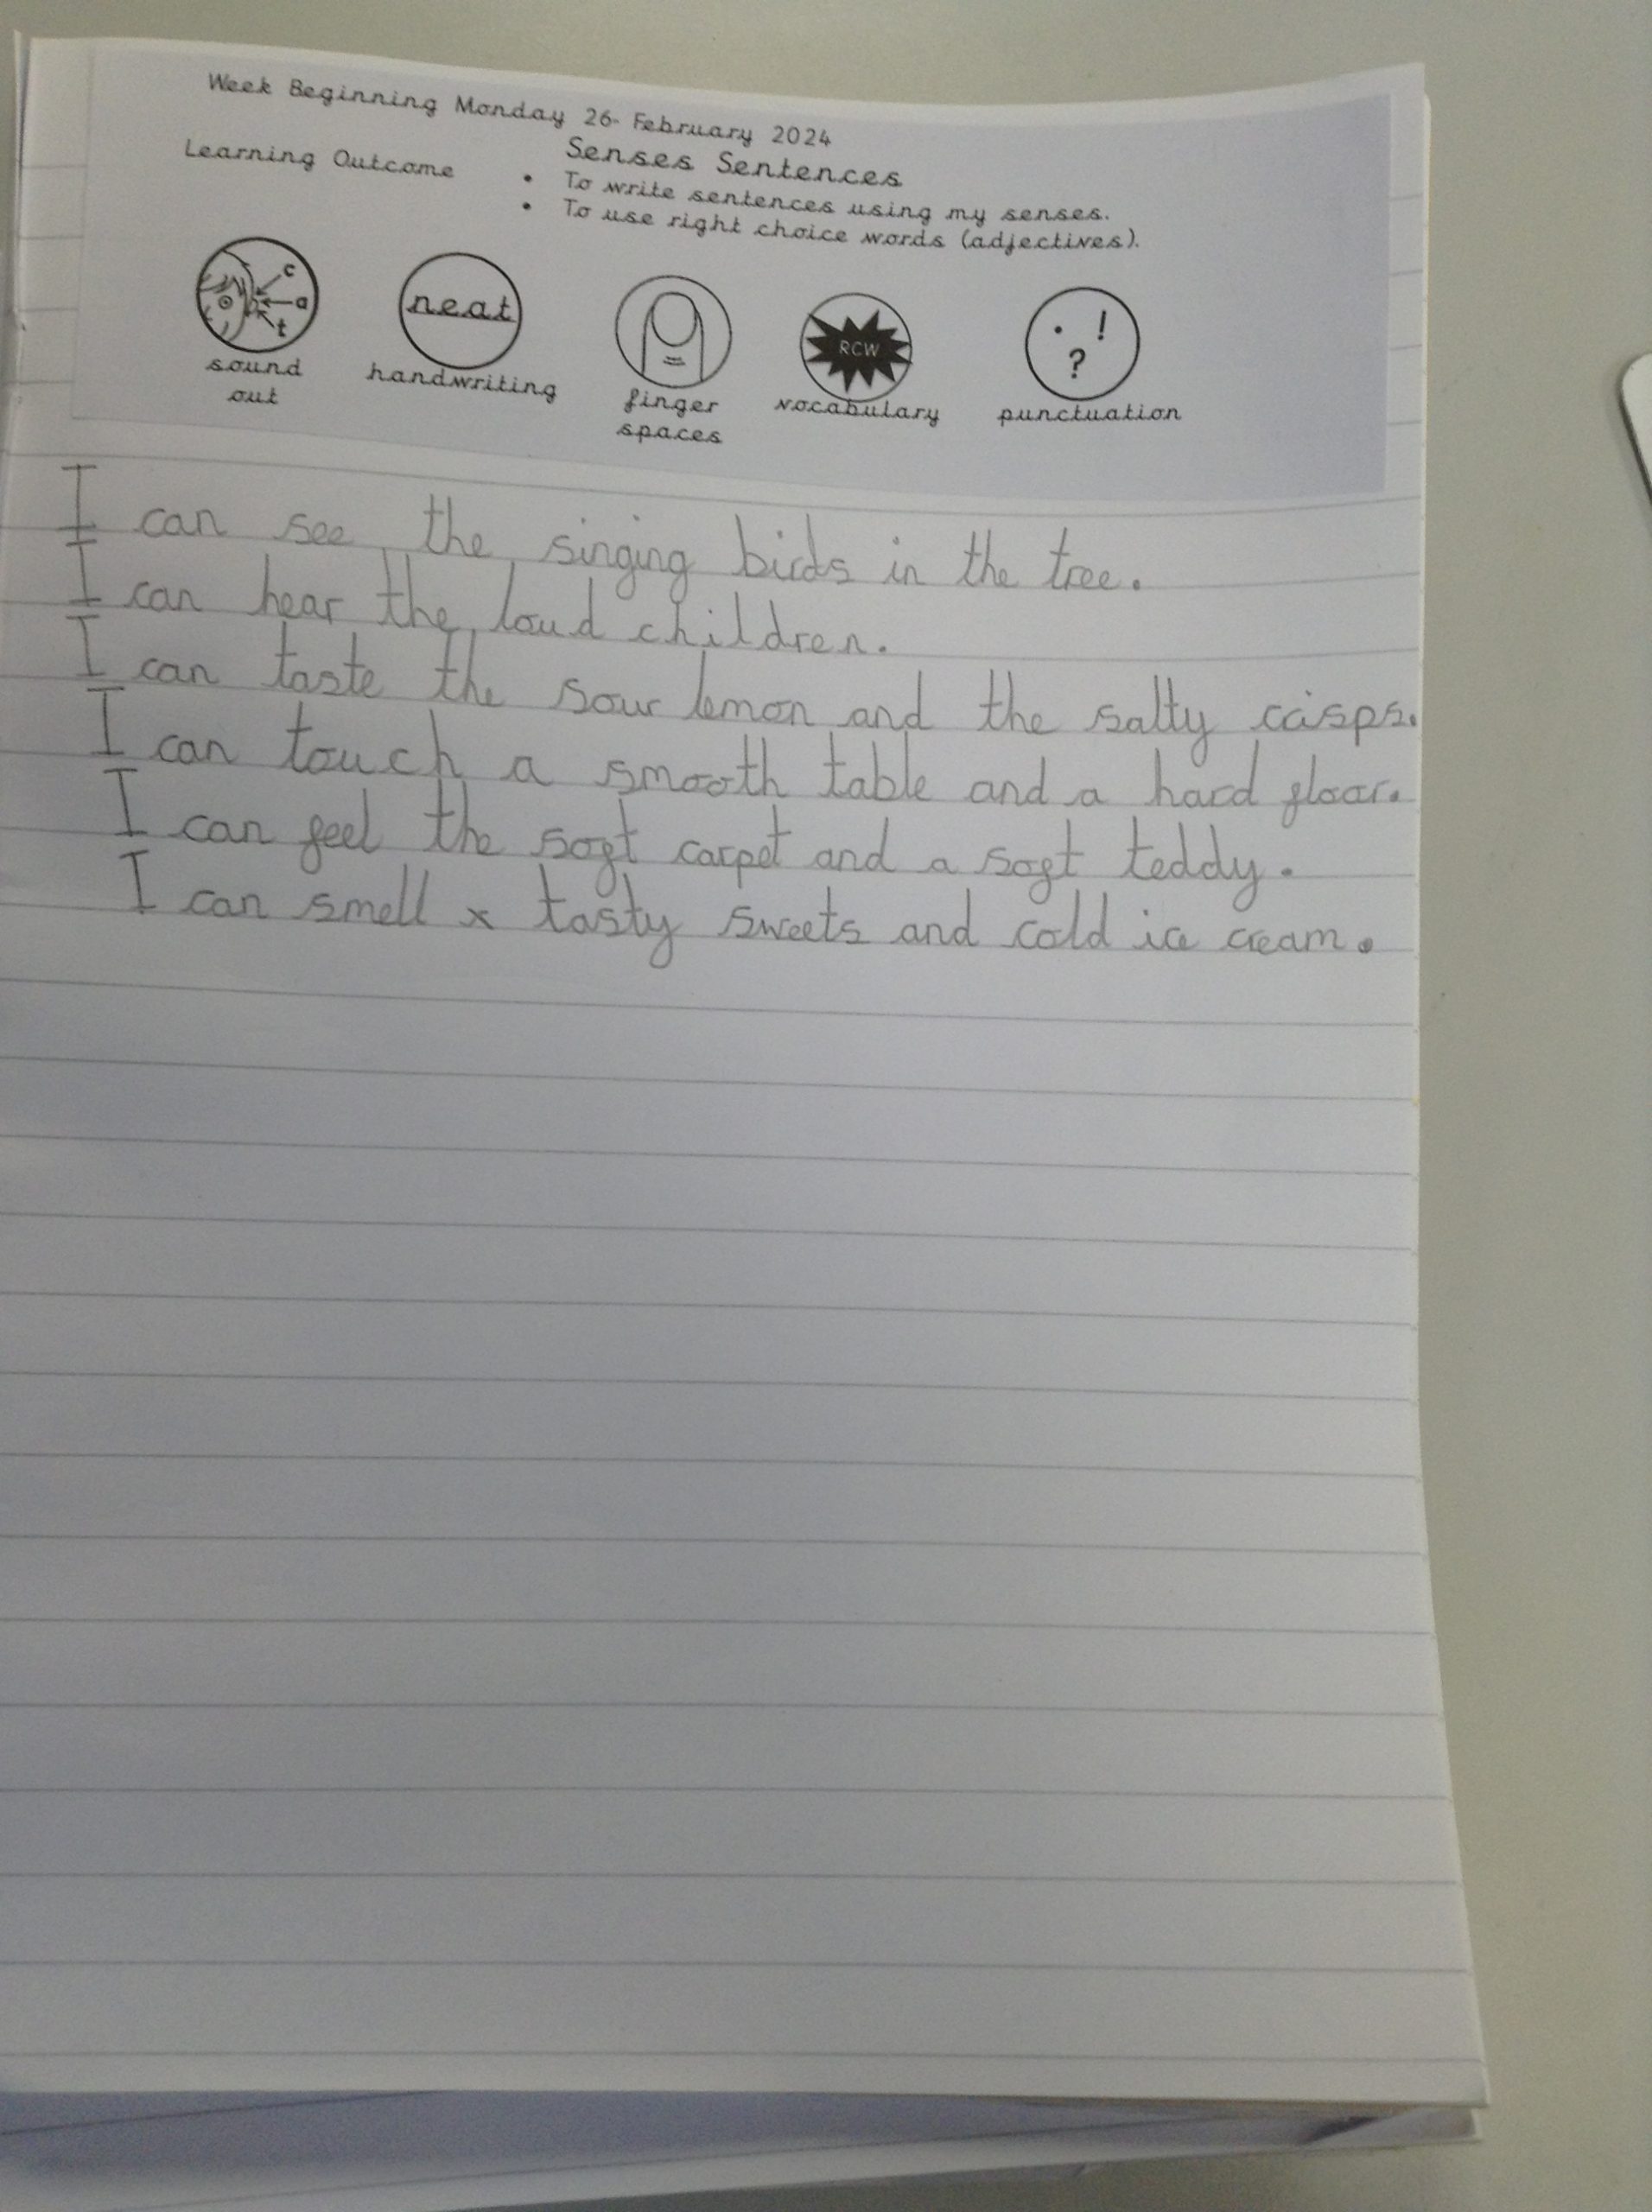 Week Beginning Monday 26th February 2024
Learning Outcome
Senses Sentences
• To write sentences using my senses.
• To use right choice words (adjectives).
c
a
t
neat
RCW
. ! ?
sound out
handwriting
finger spaces
vocabulary
punctuation
I can see the singing birds in the tree.
I can hear the loud children.
I can taste the sour lemon and the salty crisps.
I can touch a smooth table and a hard floor.
I can feel the soft carpet and a soft teddy.
I can smell x tasty sweets and cold ice cream.